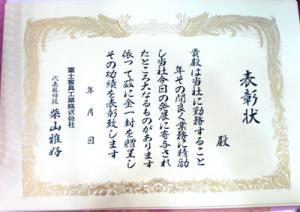 表彰状
殿
貴殿は当社に勤務すること
年その間良く業務に精励
し当社今日の発展に寄与され
たところ大なるものがあります
依って茲に金一封を贈呈し
その功績を表彰致します
年 月 日
富士家具工業株式会社
代表取締役 柴山雅好